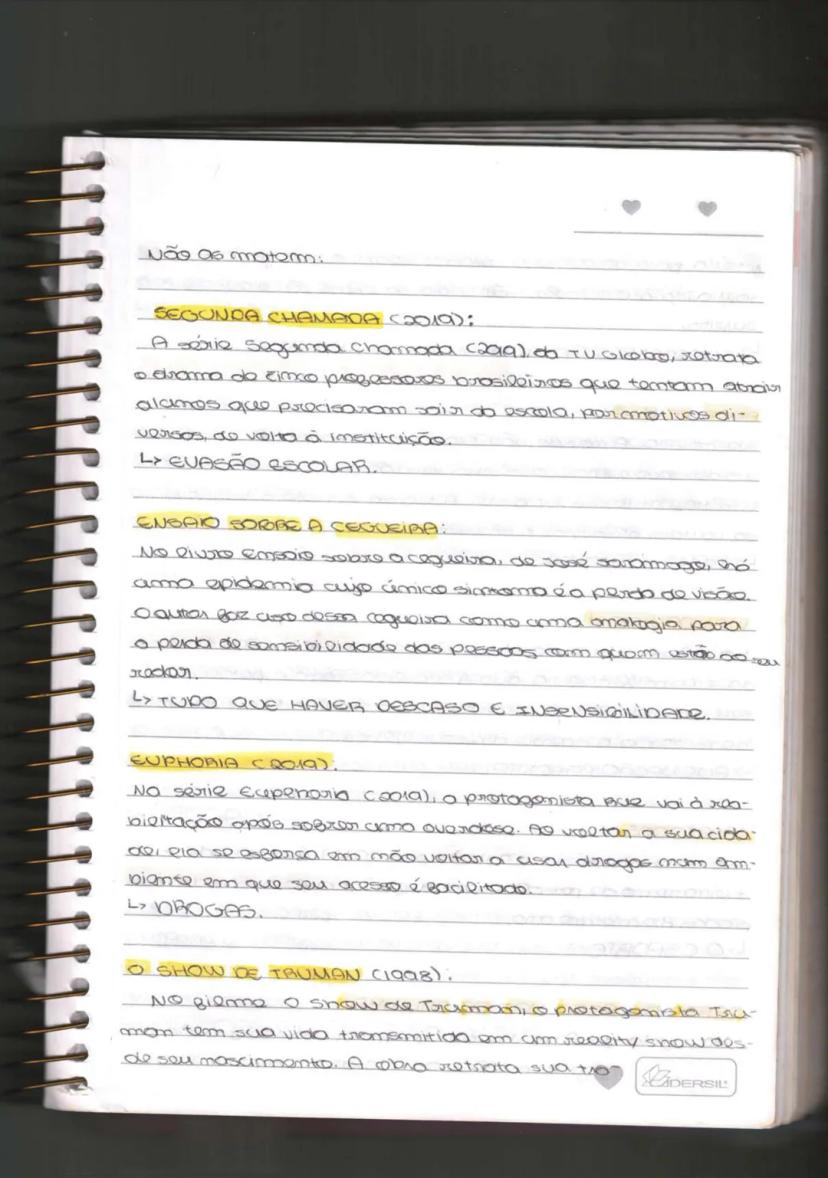 Não as matem:
SEGUNDA CHAMADA (2019):
A série Segunda Chamada (2019), da TV Globo, retrata
o drama de cinco professores brasileiros que tentam atrair
alunos que precisaram sair da escola, por motivos di-
versos, de volta à instituição.
↳ EVASÃO ESCOLAR.
ENSAIO SOBRE A CEGUEIRA:
No livro ensaio sobre a cegueira, de José saramago, há
uma epidemia cujo único sintoma é a perda de visão.
O autor faz uso dessa cegueira como uma analogia para
a perda de sensibilidade das pessoas com quem estão ao seu
redor.
↳ TUDO QUE HAVER DESCASO E INSENSIBILIDADE.
EUPHORIA (2019):
Na série Euphoria (2019), a protagonista Rue vai à rea-
bilitação após sofrer uma overdose. Ao voltar a sua cida-
de, ela se esforça em não voltar a usar drogas num am-
biente em que seu acesso é facilitado.
↳ DROGAS.
O SHOW DE TRUMAN (1998):
No filme O show de Truman, o protagonista Tru-
man tem sua vida transmitida em um reality show des-
de seu nascimento. A obra retrata sua tra-
IDERSIL